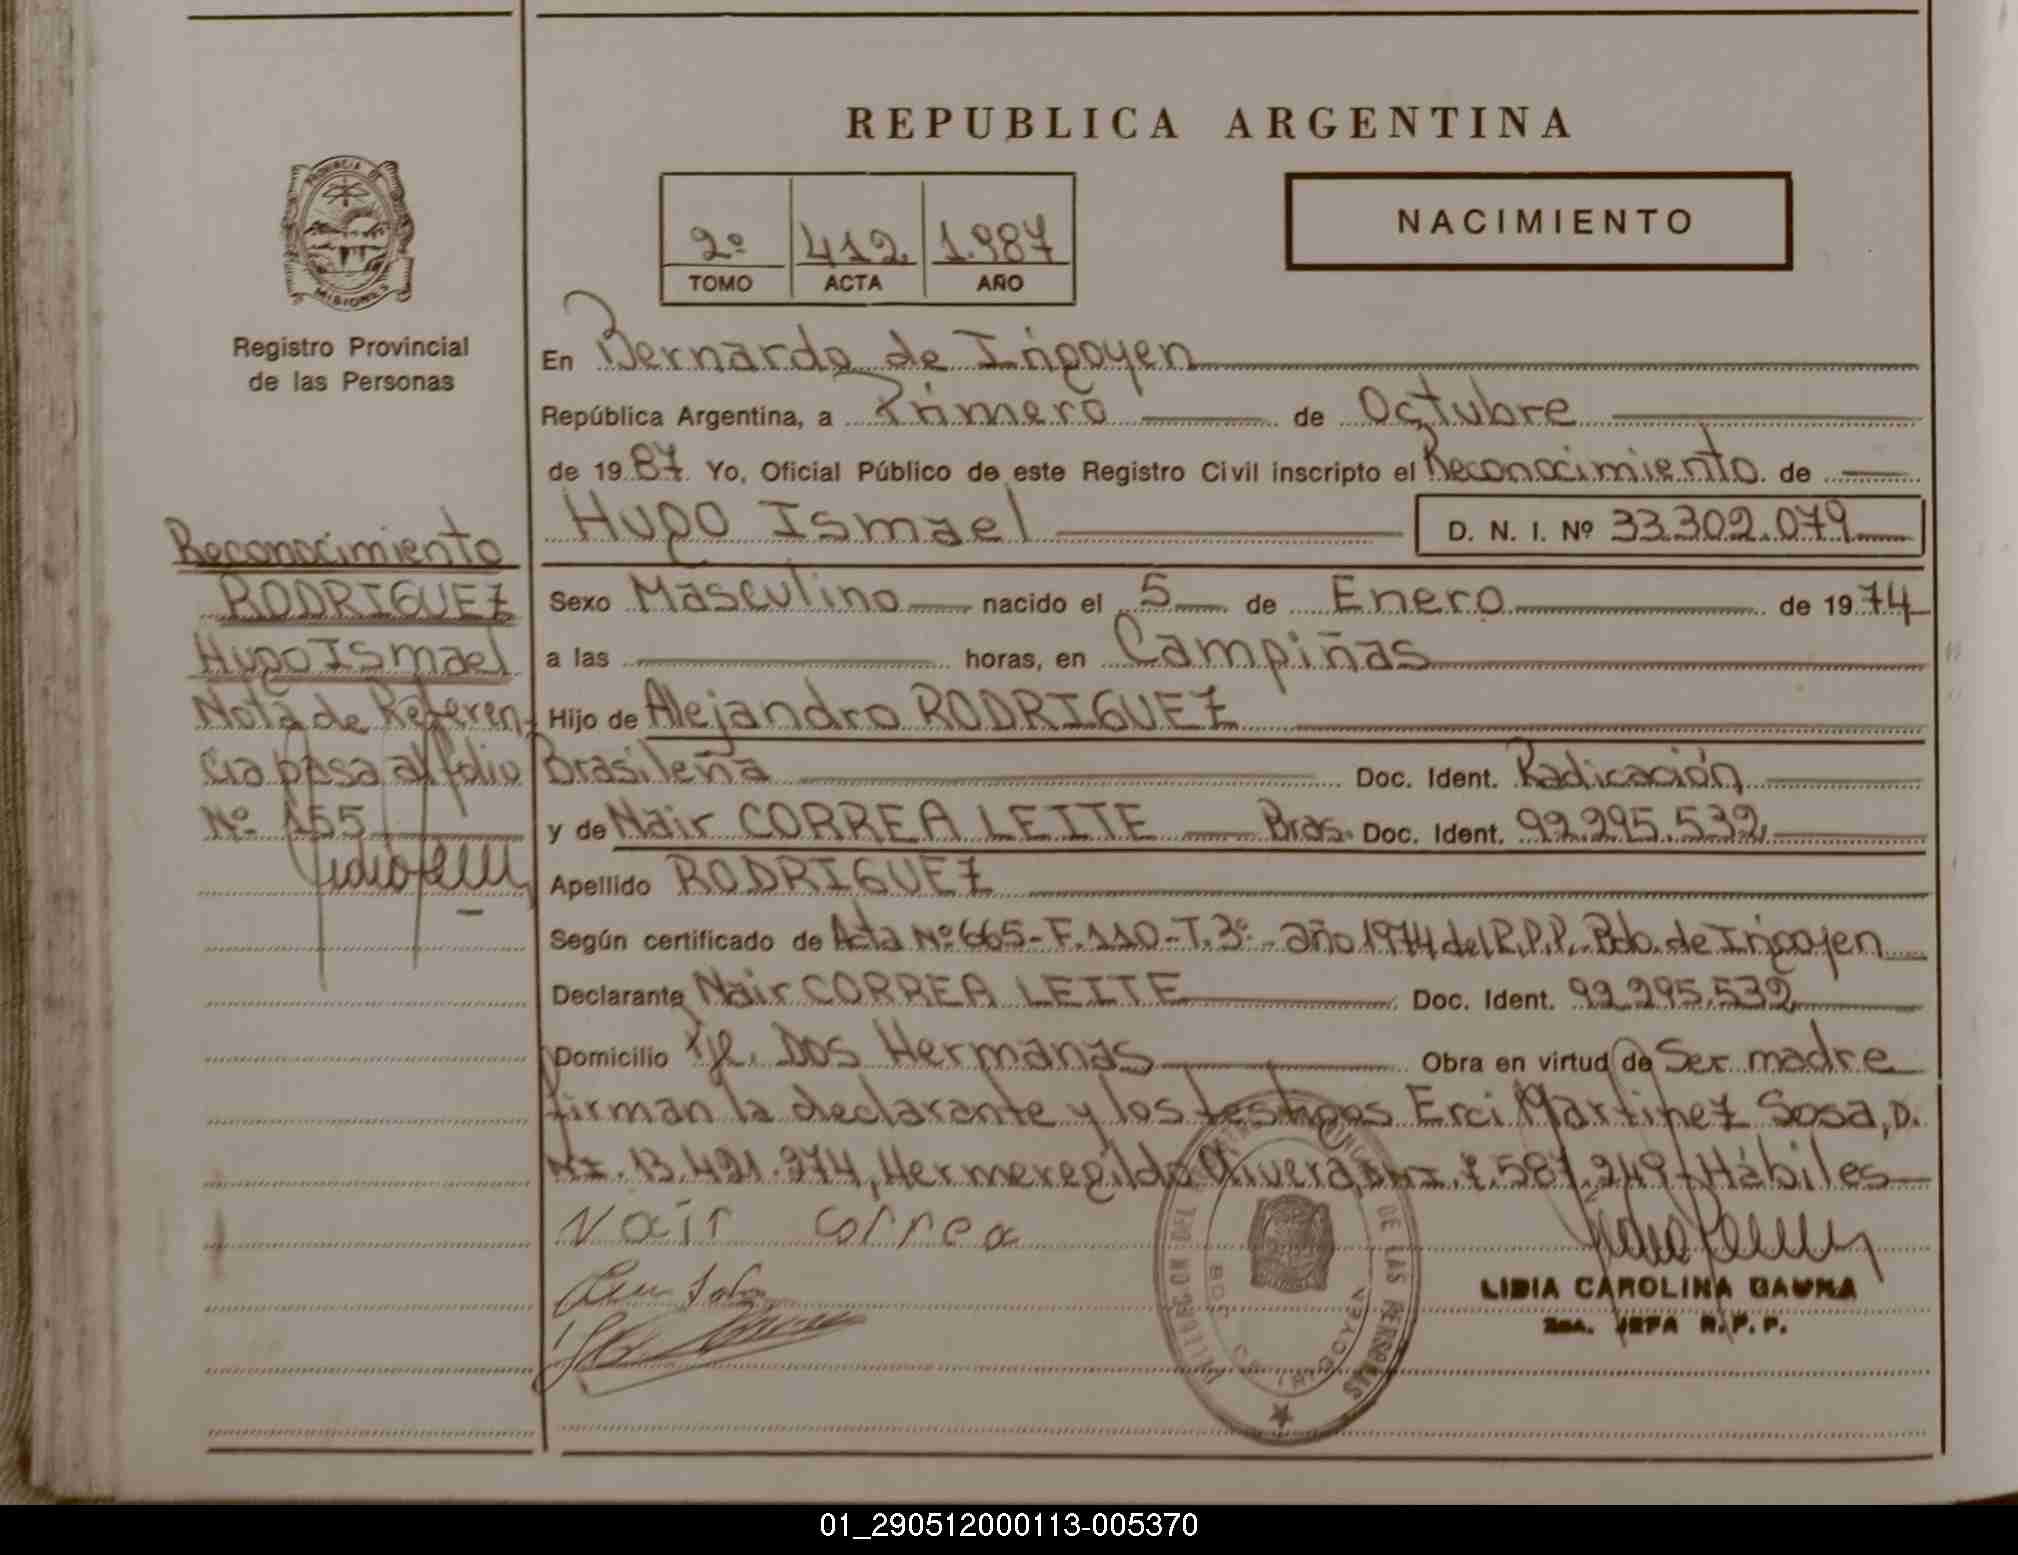 REPUBLICA ARGENTINA
NACIMIENTO
2º 412 1.987
TOMO ACTA AÑO
PROVINCIA DE
MISIONES
Registro Provincial
de las Personas
En Bernardo de Irigoyen
República Argentina, a Primero de Octubre
de 1987. Yo, Oficial Público de este Registro Civil inscripto el Reconocimiento de
Hugo Ismael D. N. I. Nº 33.302.079
Sexo Masculino nacido el 5 de Enero de 1974
a las horas, en Campiñas
Hijo de Alejandro RODRIGUEZ
Brasileña Doc. Ident. Radicación
y de Nair CORREA LEITE Bras. Doc. Ident. 92.295.532
Apellido RODRIGUEZ
Según certificado de Acta Nº 665-F.110-T.3º año 1974 del R.P.P. Bdo. de Irigoyen
Declarante Nair CORREA LEITE Doc. Ident. 92.295.532
Domicilio Pje. Dos Hermanas Obra en virtud de Ser madre
firman la declarante y los testigos Erci Martinez Sosa, D.
N.I. 13.421.274, Hermeregildo Olivera, D.N.I. 7.587.249, Hábiles
Nair Correa
LIDIA CAROLINA GAUNA
2da. JEFA R.P.P.
DELEGACION DEL DE LAS PERSONAS
BDO. DE IRIGOYEN
Reconocimiento
RODRIGUEZ
Hugo Ismael
Nota de Referen-
cia pasa al folio
Nº 155
01_290512000113-005370